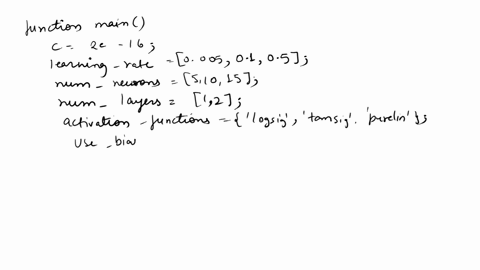 function main()
c = 2e -16;
learning_rate = [0.005, 0.1, 0.5];
num_neurons = [5,10,15];
num_layers = [1,2];
activation_functions = {'logsig', 'tansig'. 'purelin'};
use_bia